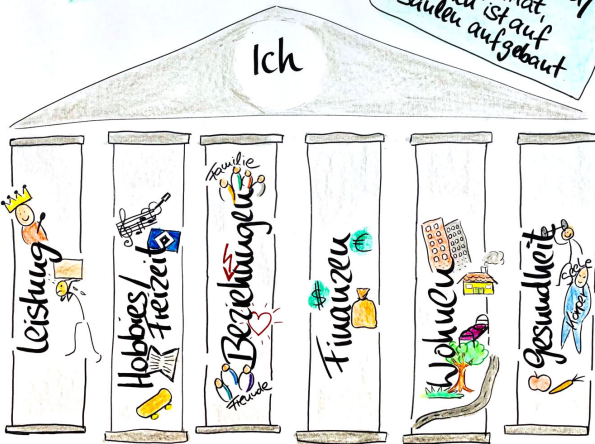 auf
Säulen aufgebaut
Ich
Leistung
Hobbies/
Freizeit
Familie
Beziehungen
Freunde
Finanzen
$
€
Wohnen
Gesundheit
Seele
Körper